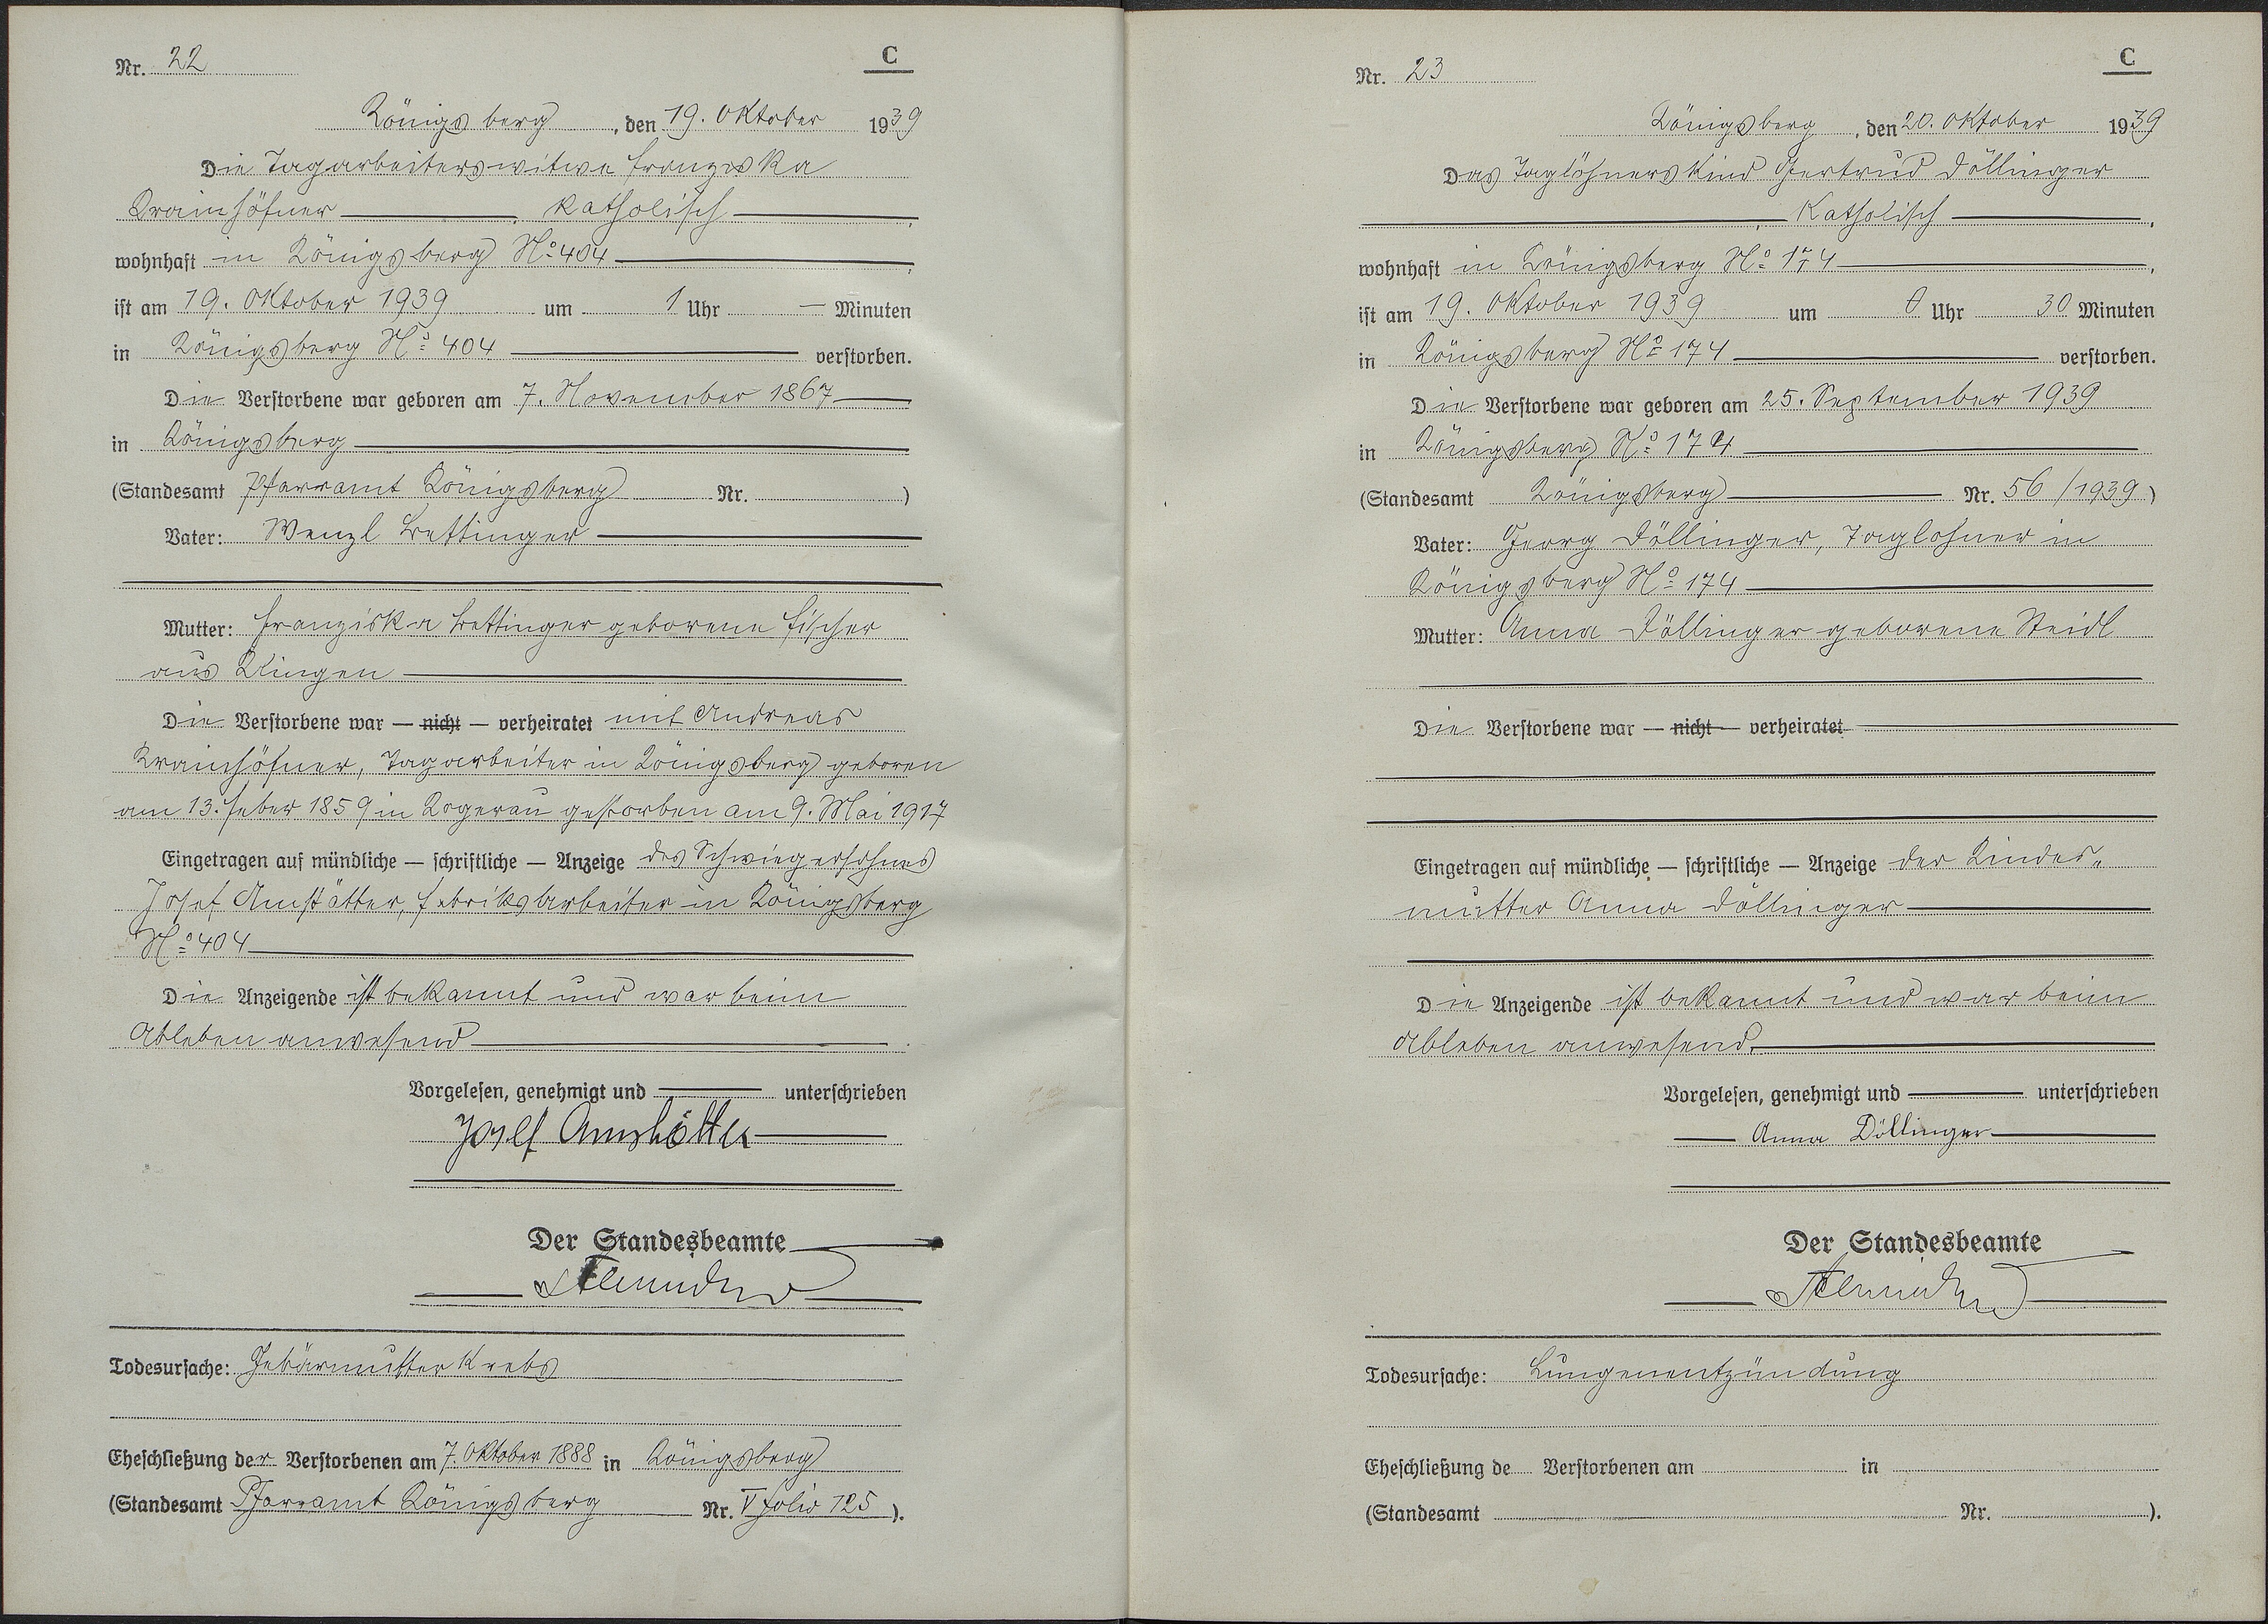 Nr. 22
C
Königsberg, den 19. Oktober 1939
Die Tagarbeiterswitwe Franziska
Krainhöfner, katholisch,
wohnhaft in Königsberg No 404,
ist am 19. Oktober 1939 um 1 Uhr — Minuten
in Königsberg No 404 verstorben.
Die Verstorbene war geboren am 7. November 1867
in Königsberg
(Standesamt Pfarramt Königsberg Nr. )
Vater: Wenzl
Mutter: Franziska geborene Fischer
aus Klingen
Die Verstorbene war — nicht — verheiratet mit Andreas
Krainhöfner, Tagarbeiter in Königsberg geboren
am 13. Feber 1859 in Kogerau gestorben am 9. Mai 1917
Eingetragen auf mündliche — schriftliche — Anzeige des Schwiegersohnes
Josef Amstätter, Fabriksarbeiter in Königsberg
No 404
Die Anzeigende ist bekannt und war beim
Ableben anwesend.
Vorgelesen, genehmigt und unterschrieben
Josef
Der Standesbeamte
Todesursache: Gebärmutterkrebs
Eheschließung der Verstorbenen am 7. Oktober 1888 in Königsberg
(Standesamt Pfarramt Königsberg Nr. V folio 125 ).
Nr. 23
C
Königsberg, den 20. Oktober 1939
Das Taglöhnerskind Gertrud Döllinger
, Katholisch,
wohnhaft in Königsberg No 174,
ist am 19. Oktober 1939 um 0 Uhr 30 Minuten
in Königsberg No 174 verstorben.
Die Verstorbene war geboren am 25. September 1939
in Königsberg No 174
(Standesamt Königsberg Nr. 56/1939)
Vater: Georg Döllinger, Taglöhner in
Königsberg No 174
Mutter: Anna Döllinger geborene Steidl
Die Verstorbene war — nicht — verheiratet
Eingetragen auf mündliche — schriftliche — Anzeige der Kindes-
mutter Anna Döllinger
Die Anzeigende ist bekannt und war beim
Ableben anwesend.
Vorgelesen, genehmigt und unterschrieben
Anna Döllinger
Der Standesbeamte
Todesursache: Lungenentzündung
Eheschließung de Verstorbenen am in
(Standesamt Nr. ).